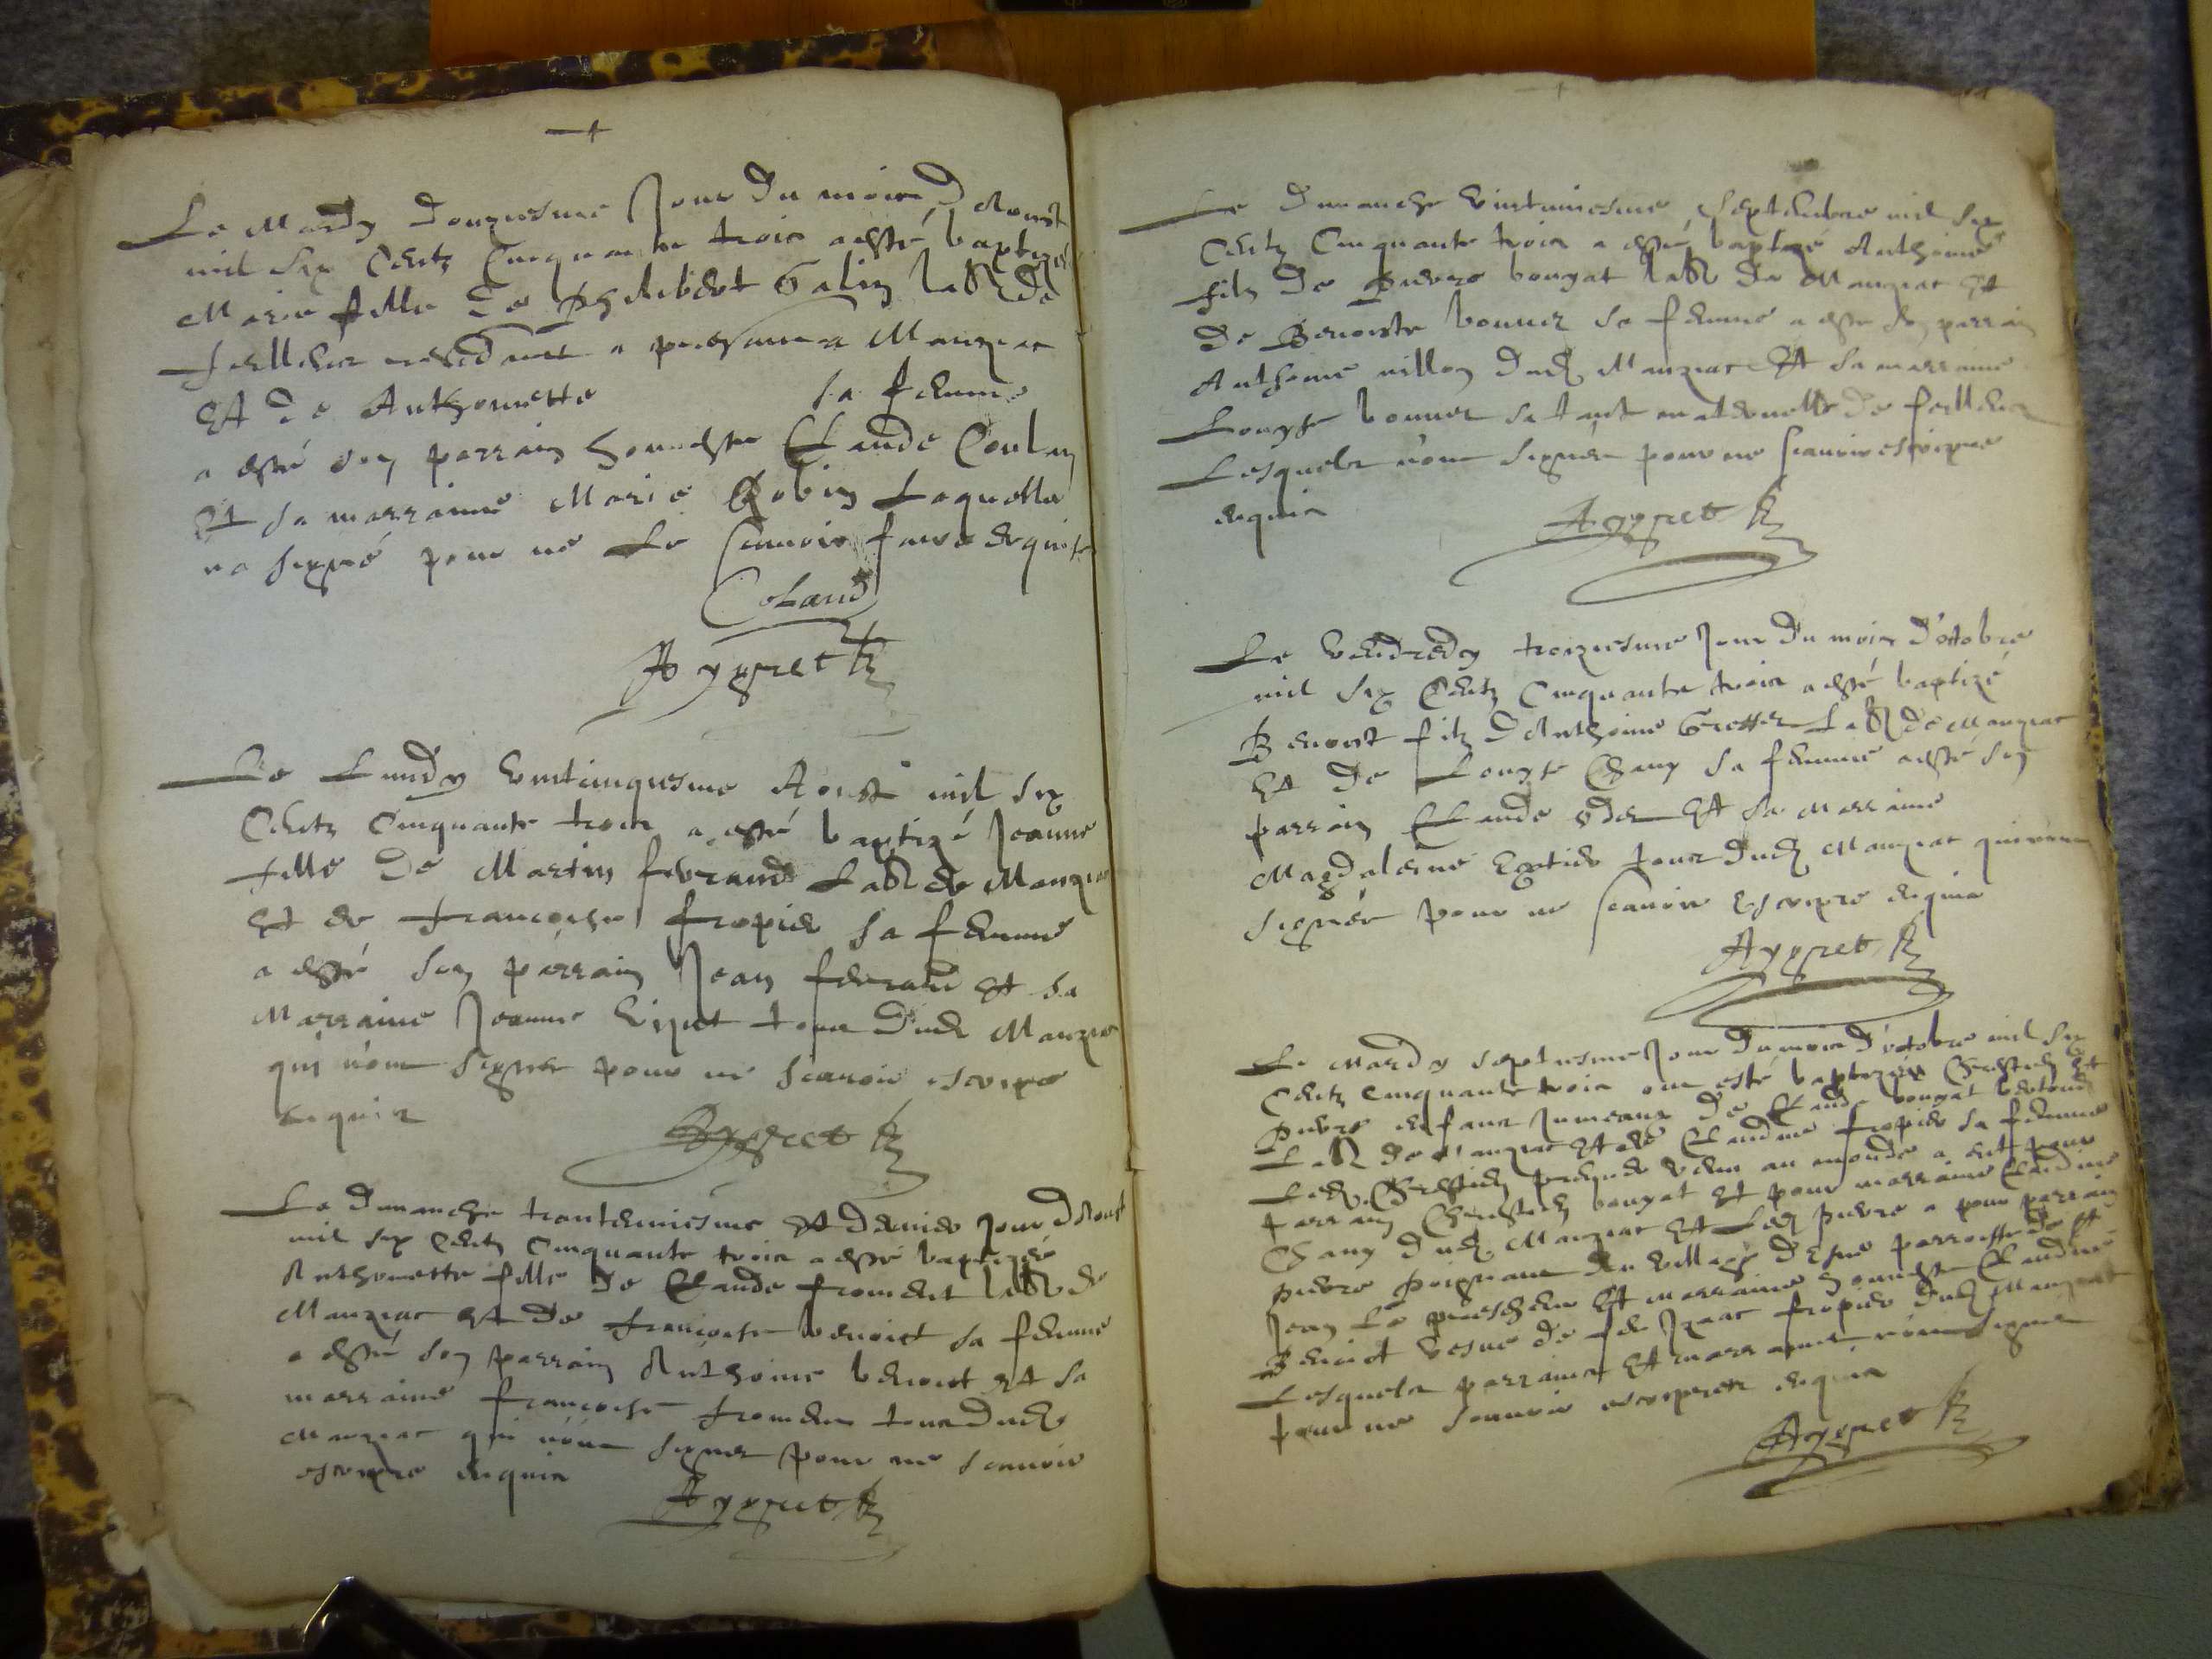 Le Mardy douziesme Jour du mois d'Aoust
mil six Centz Cinquante trois a esté baptizé
Marie fille de Philibert Galin labr de
feilleins residant a present a Manziat
Et de Anthoinette sa femme
a esté son parrain honneste Claude Coulan
Et sa marraine Marie Robin Laquelle
na signé pour ne Le scauoir faire enquise
Coland
Aygret
Le Lundy vintcinquesme Aoust mil six
Centz Cinquante trois a esté baptizé Jeanne
fille de Martin ferrand Labr de Manziat
Et de francoise fropier sa femme
a esté son parrain Jean ferrand Et sa
Marraine Jeanne tous dud Manziat
qui n'ont signer pour ne scauoir escripre
enquis
Aygret
Le dimanche trantuniesme Et dernier Jour d'Aoust
mil six Centz Cinquante trois a esté baptizée
Anthoinette fille de Claude froment labr de
Manziat Et de francoise benoist sa femme
a esté son parrain Anthoine benoist Et sa
marraine francoise froment tous dud
Manziat qui n'ont signer pour ne scauoir
escripre enquis
Aygret
Le dimanche septembre mil six
Centz Cinquante trois a esté baptizé Anthoine
filz de Pierre bouyat labr de Manziat Et
de Benoiste bonnet sa femme a esté son parrain
Anthoine dud Manziat Et sa marraine
Louyse bonnet sa tante maternelle de feilleins
Lesquels n'ont signér pour ne scauoir escripre
enquis
Aygret
Le vendredy troiziesme Jour du mois d'octobre
mil six Centz Cinquante trois a esté baptizé
Benoist filz d'Anthoine Labr de Manziat
Et de Louyse Chany sa femme a esté son
parrain Claude Et sa Marraine
Magdaleine tous dud Manziat qui n'ont
signér pour ne scauoir Escripre enquis
Aygret
Le Mardy septiesme Jour du mois d'octobre mil six
Centz cinquante trois ont esté baptizés Chrestien Et
Pierre enfans Jumeaux de Claude bouyat
Labr de Manziat Et de Claudine fropier sa femme
Led Chrestien premier venu au monde a eut pour
parrain Chrestien bouyat Et pour marraine Claudine
Chany dud Manziat Et Led Pierre a pour parrain
Pierre du village d'Esne parroisse de St
Jean Le priche Et marraine honneste Claudine
Benoist vesue de feu Izaac fropier dud Manziat
Lesquels parrains Et marraines n'ont signer
pour ne scauoir escripre enquis
Aygret